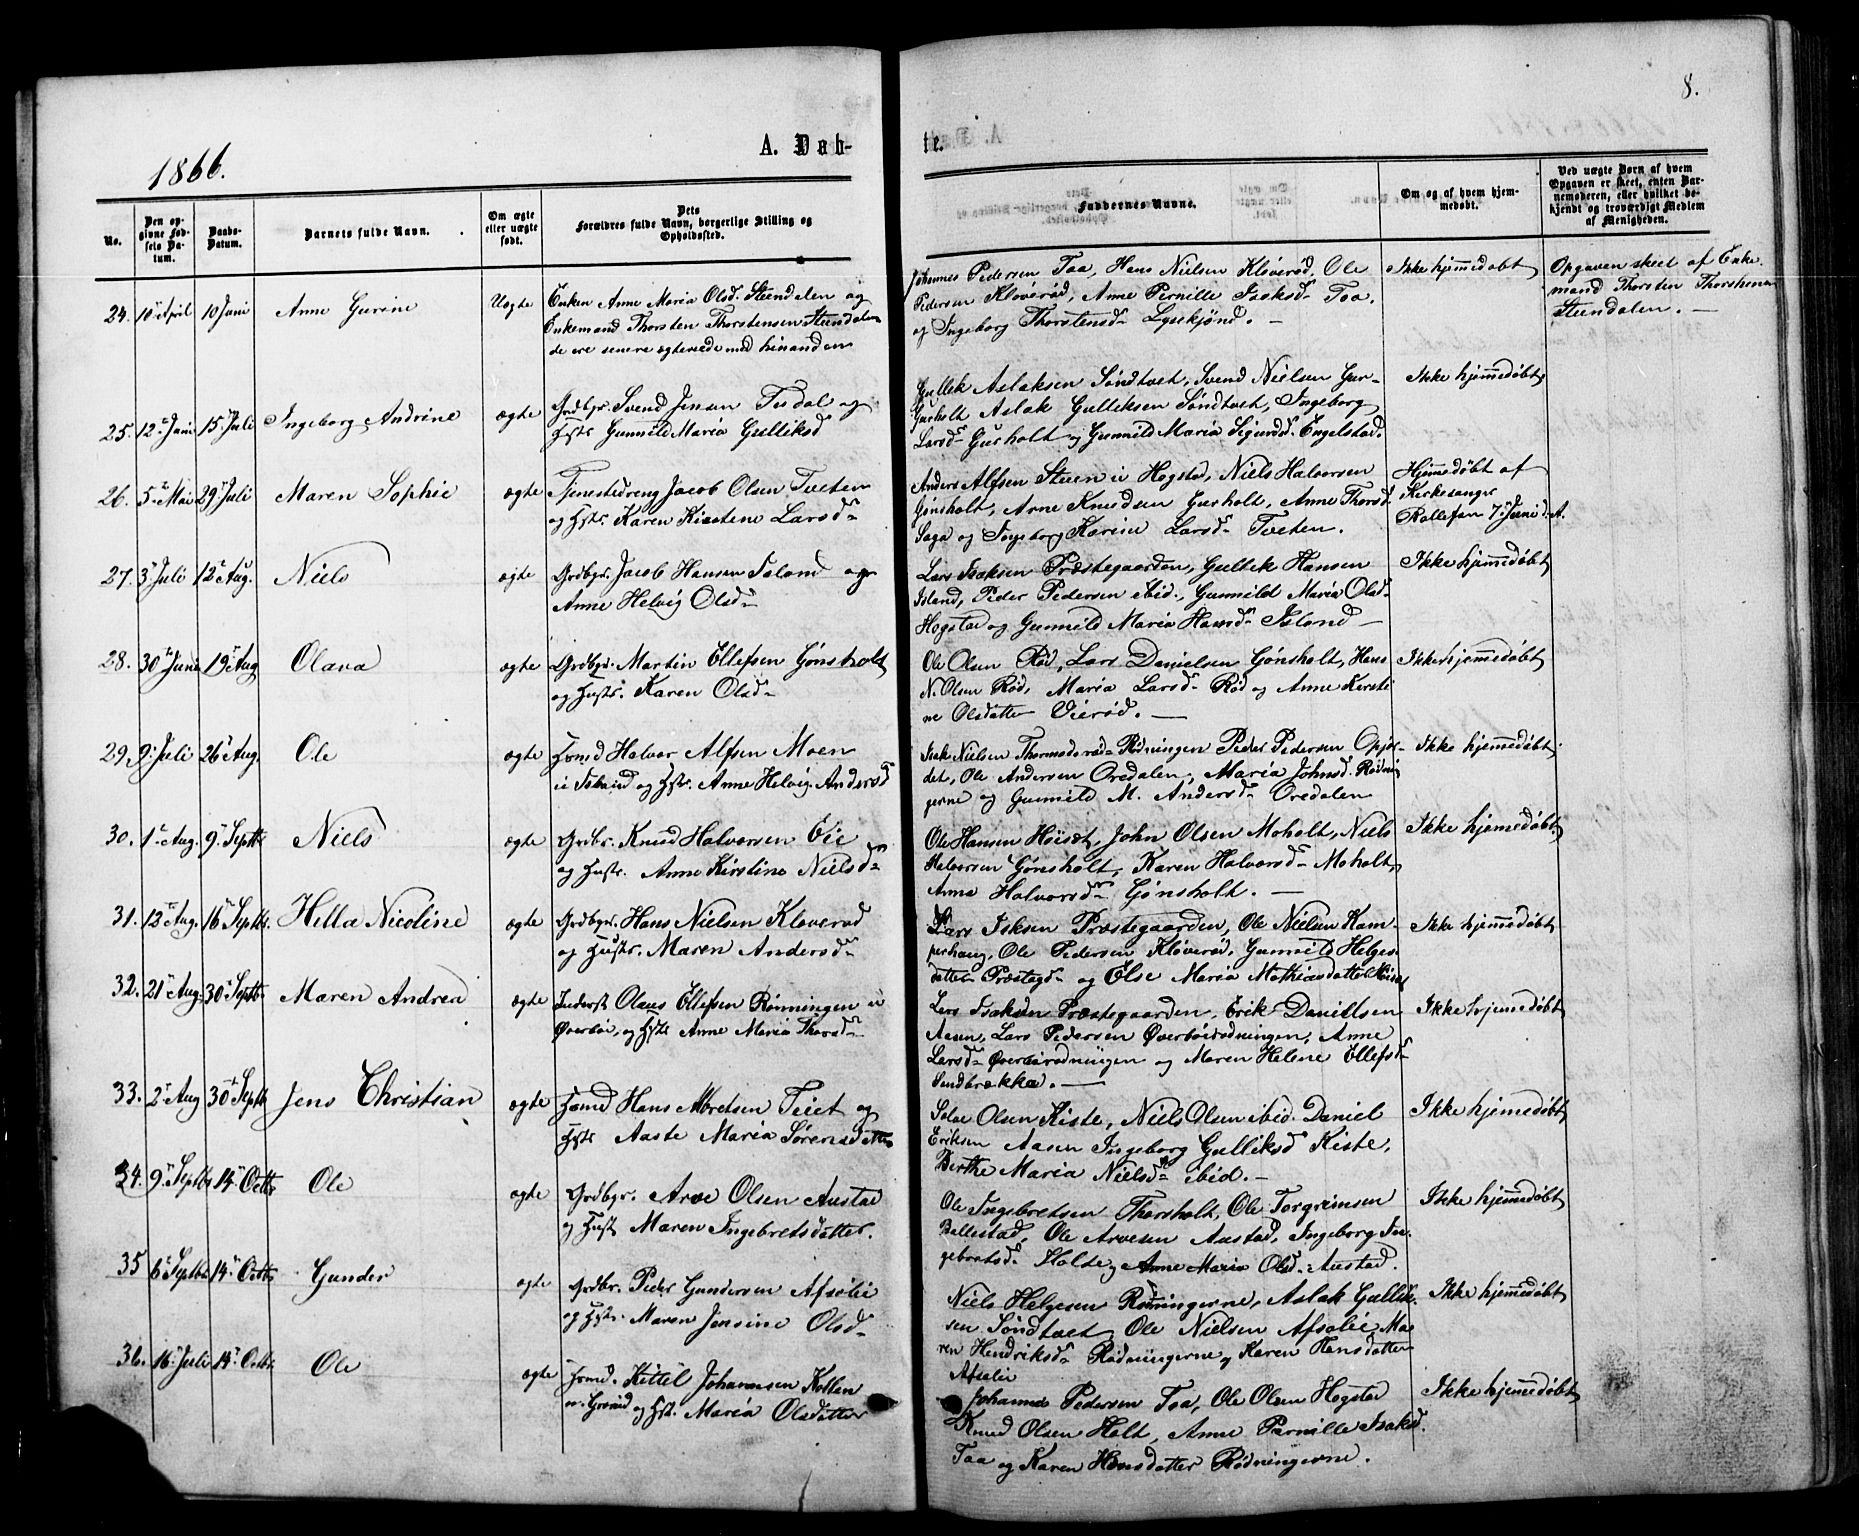 8.
1866.
A. Dåb-
te.
No.
Den opgivne Fødsels Datum.
Daabs-Datum.
Barnets fulde Navn.
Om ægte eller uægte født.
Dets Forældres fulde Navn, borgerlige Stilling og Opholdssted.
Faddernes Navne.
Om og af hvem hjemmedøbt.
Ved uægte Børn af hvem Opgaven er skeet, enten Barnemoderen, eller hvilket bekjendt og troværdigt Medlem af Menigheden.
24. 10de April 10 Juni Anne Gurine Uægte
Enken Anne Maria Olsd. Steendalen og
Enkemand Thorsten Thorstensen Steendalen
de ere senere ægteviede med hinanden
Johannes Pedersen Taa, Hans Nielsen Kløverød, Ole
Pedersen Kløverød, Anne Pernille Isaksd. Taa,
og Ingeborg Thorstensd. Lysekjønd. —
Ikke hjemmedøbt
Opgaven skeet af Enke-
mand Thorsten Thorstensen
Steendalen. —
25. 12te Juni 15de Juli Ingeborg Andrine ægte
Grdbgr. Svend Jensen Tisdal og
Hstr. Gunnild Maria Gulliksd
Gullik Aslaksen Søndtvet, Svend Nielsen Gur-
Gurholt Aslak Gulliksen Søndtvet, Ingeborg
Larsd. Gurholt og Gunnild Maria Sigurdsd. Engelstad.
Ikke hjemmedøbt
26. 5te Mai 29de Juli Maren Sophie ægte
Tjenestedreng Jacob Olsen Tveten
og Hstr. Karen Kirstene Larsd.
Anders Alfsen Steen i Hogstad, Niels Halvorsen
Gjønsholt, Arne Knudsen Gurholt, Anne Thorsd.
Saga og Ingeborg Karine Larsd. Tveten.
Hjemmedøbt af
Kirkesanger
Rollefsen 7de Juni d. A.
27. 3de Juli 12te Aug. Niels ægte
Grdbgr. Jacob Hansen Island og
Anne Helvig Olsd.
Lars Isaksen Præstegaarden, Gullik Hansen
Island, Peder Pedersen ibid., Gunnild Maria Olsd.
Hogstad og Gunnild Maria Hansd. Island —
Ikke hjemmedøbt
28. 30te Juni 19de Aug Olava ægte
Grdbgr. Martin Ellefsen Gønsholt
og Hustr. Karen Olsd.
Ole Olsen Rød, Lars Danielsen Gønsholt, Hans
N. Olsen Rød, Maria Larsd. Rød og Anne Kirsti-
ne Olsdatter Vierød. —
Ikke hjemmedøbt
29. 9de Juli 26de Aug. Ole ægte
Hsmd Halvor Alfsen Moen
i Island og Hstr. Anne Helvig Andersd
Isak Nielsen Thormodsrød-Rødningen Peder Pedersen Opjor-
det, Ole Andersen Oredalen, Maria Johnsd. Rødnin
gerne og Gunnild M. Andersd. Oredalen
Ikke hjemmedøbt
30. 1ste Aug. 9de Septb. Niels ægte
Grdbr. Knud Halvorsen Eie
og Hustr. Anne Kirstine Nielsd.
Ole Hansen Høiset, John Olsen Moholt, Niels
Halvorsen Gønsholt, Karen Halvorsd. Moholt,
Anne Halvorsd. Gønsholt. —
Ikke hjemmedøbt
31. 12te Aug. 16de Septbr. Hella Nicoline ægte
Grdbgr. Hans Nielsen Kløverød
og Hustr. Maren Andersd.
Lars Isksen Præstegaarden, Ole Nielsen Kam-
perhaug, Ole Pedersen Kløverød, Gunnild Helges-
datter Præstegd. og Else Maria Mathiasdatter
Ikke hjemmedøbt
32. 21de Aug. 30te Septb. Maren Andrea ægte
Inderst Olaus Ellefsen Rønningen i
Øverbøi, og Hstr. Anne Maria Thorsd.
Lars Isaksen Præstegaarden, Erik Daniellsen
Aasen, Lars Pedersen Øverbøirødningen, Anne
Larsd. Øverbøirødningen og Maren Helene Ellefsd.
Sundbrække. —
Ikke hjemmedøbt
33. 2de Aug 30te Septb Jens Christian ægte
Hsmd Hans Moretsen Teiet og
Hstr Aaste Maria Sørensdatter
Olsen Kiste, Niels Olsen ibid. Daniel
Eriksen Aasen, Ingeborg Gulliksd Kiste,
Birthe Maria Nielsd. ibid. —
Ikke hjemmedøbt
34. 9de Septbr 14de Octbr Ole ægte
Grdbgr. Arve Olsen Austad
og Hustr Maren Ingebretsdatter.
Ole Ingebretsen Thorsholt, Ole Torgrimsen
Bellestad, Ole Arvesen Austad, Ingeborg In-
gebretsd. Holte og Anne Maria Olsd. Austad.
Ikke hjemmedøbt
35 6te Septbr 14de Octbr Gunder ægte
Grdbr. Peder Gundersen Afsølie
og Hstr. Maren Jensine Olsd.
Niels Helgesen Rødningerne, Aslak Gullik-
sen Søndtvet, Ole Nielsen Afsølie, Ma-
ren Hendriksd. Rødningerne og Karen Hansdatter
Afsølie
Ikke hjemmedøbt
36. 16de Juli 14de Octbr Ole ægte
Hsmd. Kittil Johannsen Kollen
og Hst. Maria Olsdatter
Johannes Pedersen Taa, Ole Olsen Hogstad
Knud Olsen Holt, Anne Pernille Isaksd.
Taa og Karen Hansdatter Rødningerne.
Ikke hjemmedøbt